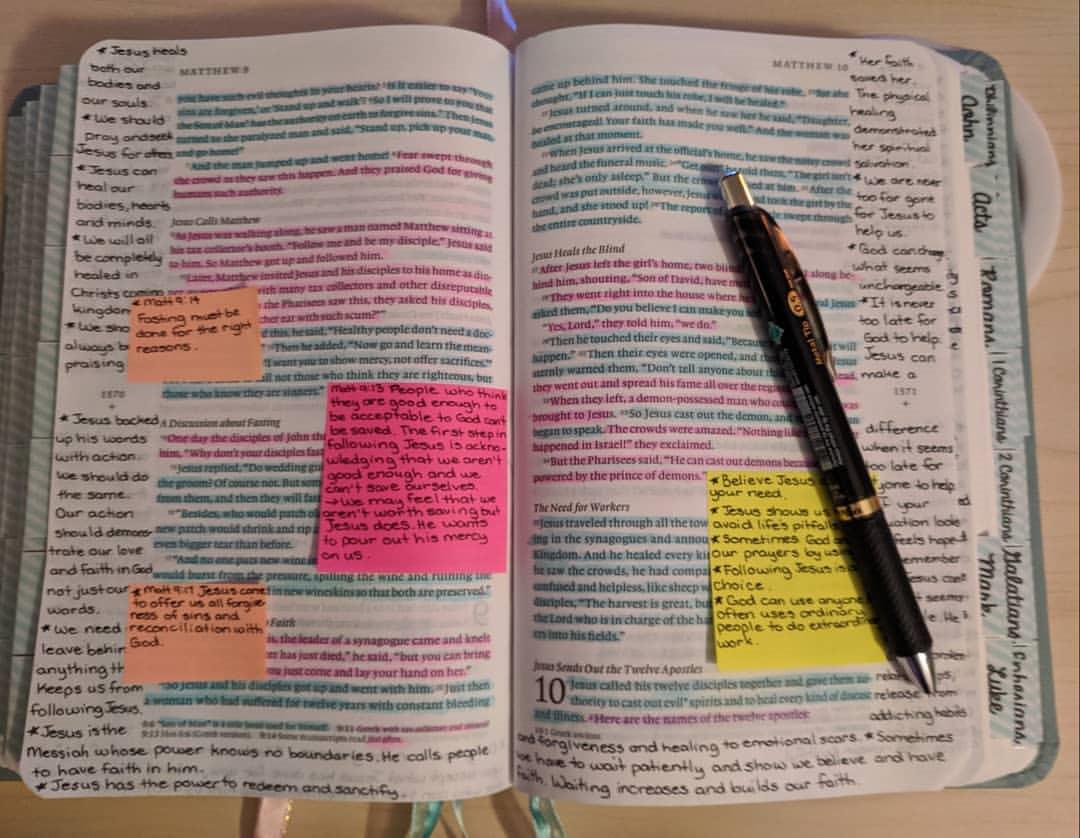 * Jesus heals
both our
bodies and
our souls.
* We should
pray and seek
Jesus for often
* Jesus can
heal our
bodies, hearts
and minds.
* We will all
be completely
healed in
Christs coming
Kingdom
* We sho
always b
praising
1570
* Jesus backed
up his words
with action.
We should do
the same.
Our action
should demons-
trate our love
and faith in God
not just our
words.
* We need
leave behin
anything th
Keeps us from
following Jesus.
* Jesus is the
Messiah whose power knows no boundaries. He calls people
to have faith in him.
* Jesus has the power to redeem and sanctify.
MATTHEW 9
you have such evil thoughts in your hearts? Is it easier to say 'Your
sins are forgiven,' or 'Stand up and walk'? So I will prove to you that
the Son of Man has the authority on earth to forgive sins." Then Jesus
turned to the paralyzed man and said, "Stand up, pick up your mat,
and go home!"
And the man jumped up and went home! Fear swept through
the crowd as they saw this happen. And they praised God for giving
humans such authority.
Jesus Calls Matthew
As Jesus was walking along, he saw a man named Matthew sitting at
his tax collector's booth. "Follow me and be my disciple," Jesus said
to him. So Matthew got up and followed him.
Later, Matthew invited Jesus and his disciples to his home as din-
with many tax collectors and other disreputable
the Pharisees saw this, they asked his disciples,
her eat with such scum?"
d this, he said, "Healthy people don't need a doc-
Then he added, "Now go and learn the mean-
want you to show mercy, not offer sacrifices.'
ll not those who think they are righteous, but
those who know they are sinners."
* Matt 9:14
Fasting must be
done for the right
reasons.
A Discussion about Fasting
One day the disciples of John th
him, "Why don't your disciples fast
Jesus replied, "Do wedding gu
the groom? Of course not. But som
from them, and then they will fast
"Besides, who would patch ol
new patch would shrink and rip
even bigger tear than before.
"And no one puts new wine
would burst from the pressure, spilling the wine and ruining the
in new wineskins so that both are preserved."
Matt 9:13 People who think
they are good enough to
be acceptable to God can't
be saved. The first step in
following Jesus is ackno-
wledging that we aren't
good enough and we
can't save ourselves.
→ We may feel that we
aren't worth saving but
Jesus does. He wants
to pour out his mercy
on us.
* Matt 9:17 Jesus came
to offer us all forgive
ness of sins and
reconciliation with
God.
Faith
is, the leader of a synagogue came and knelt
er has just died," he said, "but you can bring
ou just come and lay your hand on her."
So Jesus and his disciples got up and went with him. Just then
a woman who had suffered for twelve years with constant bleeding
MATTHEW 10
came up behind him. She touched the fringe of his robe, for she
thought, "If I can just touch his robe, I will be healed."
Jesus turned around, and when he saw her he said, "Daughter,
be encouraged! Your faith has made you well." And the woman was
healed at that moment.
When Jesus arrived at the official's home, he saw the noisy crowd
and heard the funeral music. "Get he told them. "The girl isn't
dead; she's only asleep." But the cro ed at him. After the
crowd was put outside, however, Jesus d took the girl by the
hand, and she stood up! The report swept through
the entire countryside.
Jesus Heals the Blind
After Jesus left the girl's home, two blind along be-
hind him, shouting, "Son of David, have m
They went right into the house where he Jesus
asked them, "Do you believe I can make you
"Yes, Lord," they told him, "we do."
Then he touched their eyes and said, "Because it will
happen." Then their eyes were opened, and th
sternly warned them, "Don't tell anyone about th
they went out and spread his fame all over the reg
When they left, a demon-possessed man who cou was
brought to Jesus. So Jesus cast out the demon, and
began to speak. The crowds were amazed. "Nothing lik
happened in Israel!" they exclaimed.
But the Pharisees said, "He can cast out demons becau
powered by the prince of demons."
The Need for Workers
Jesus traveled through all the tow
ing in the synagogues and annou
Kingdom. And he healed every ki
he saw the crowds, he had compa
confused and helpless, like sheep w
disciples, "The harvest is great, but
the Lord who is in charge of the ha
ers into his fields."
* Believe Jesus
your need.
* Jesus shows us
avoid life's pitfall
* Sometimes God an
our prayers by us
* Following Jesus is
choice.
* God can use anyone
often uses ordinary
people to do extraordin
work.
Jesus Sends Out the Twelve Apostles
10 Jesus called his twelve disciples together and gave them au-
thority to cast out evil spirits and to heal every kind of disease
and illness. Here are the names of the twelve apostles:
* Her faith
saved her.
The physical
healing
demonstrated
her spiritual
salvation.
* We are never
too far gone
for Jesus to
help us.
* God can chang
what seems
unchangeable
* It is never
too late for
God to help.
Jesus can
make a
1571
difference
when it seems
too late for
yone to help
your
uation look
feels hope
emember
esus can
seem
e. He
release from
addicting habits
and forgiveness and healing to emotional scars. * Sometimes
we have to wait patiently and show we believe and have
faith. Waiting increases and builds our faith.
Metal Tip 0.5
John
Acts
Romans
1 Corinthians
2 Corinthians
Galatians
Ephesians
Mark
Luke